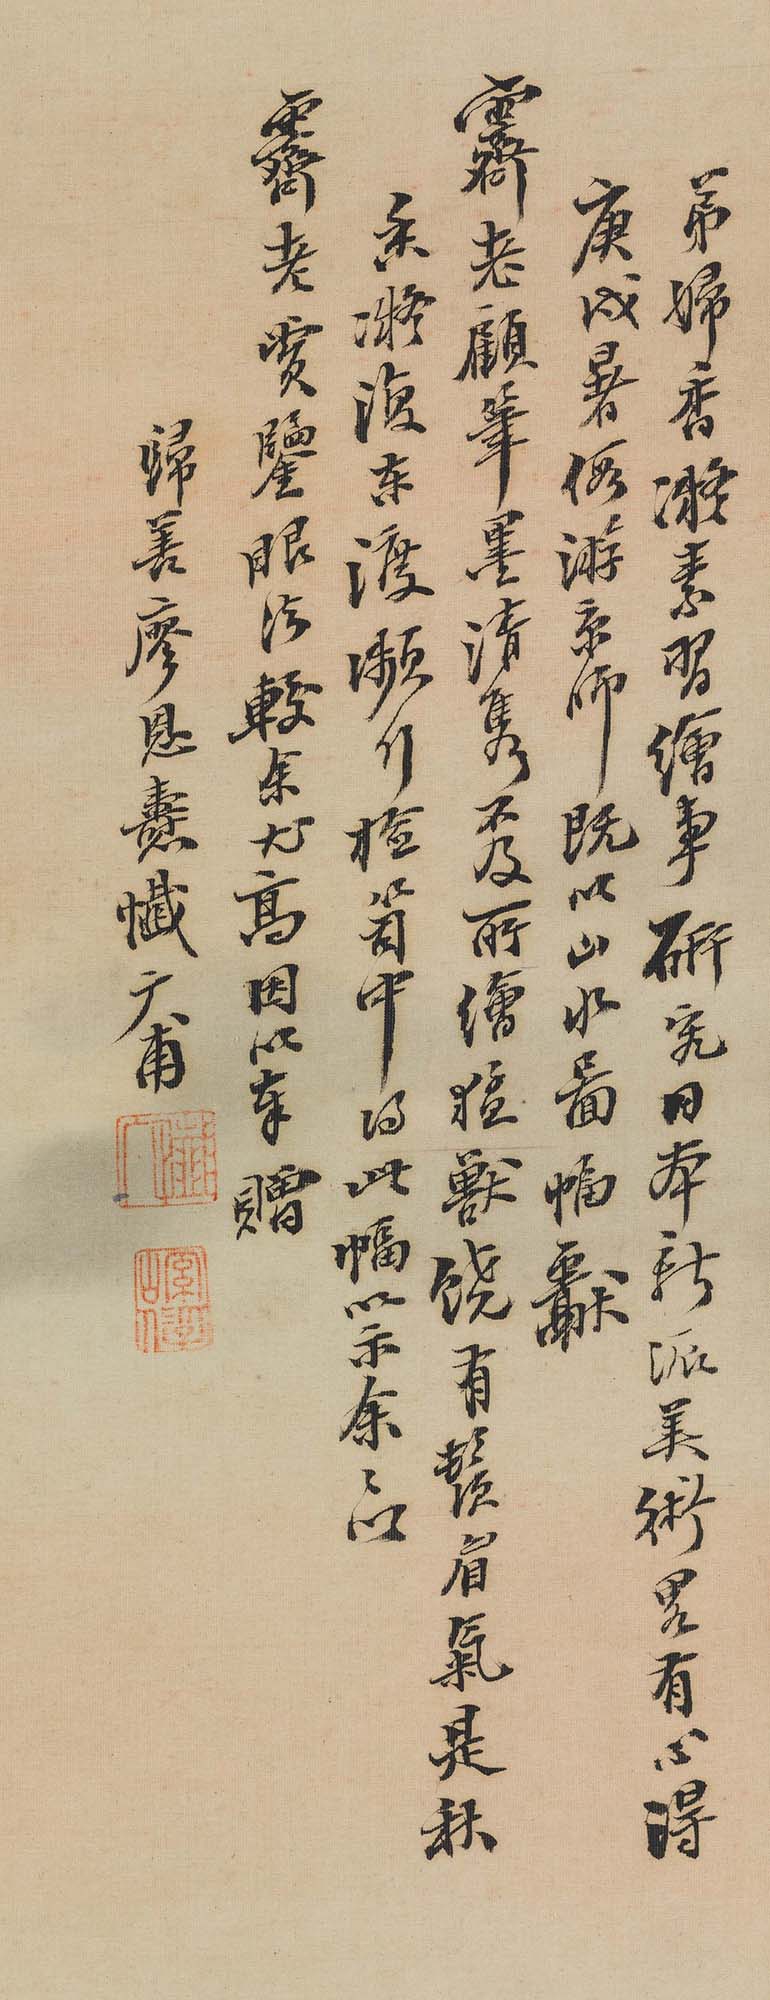 弟婦香凝素習繪事研究日本新派美術畧有心得
庚戌暑假游京師既以山水啚幅獻
霽老顧筆墨清雋不及所繪猛獸饒有鬚眉氣是秋
香凝復東渡瀕行檢笥中得此幅以示余〻以
霽老賞鑒眼法較余尤高因以奉贈
歸善廖恩燾懺广甫